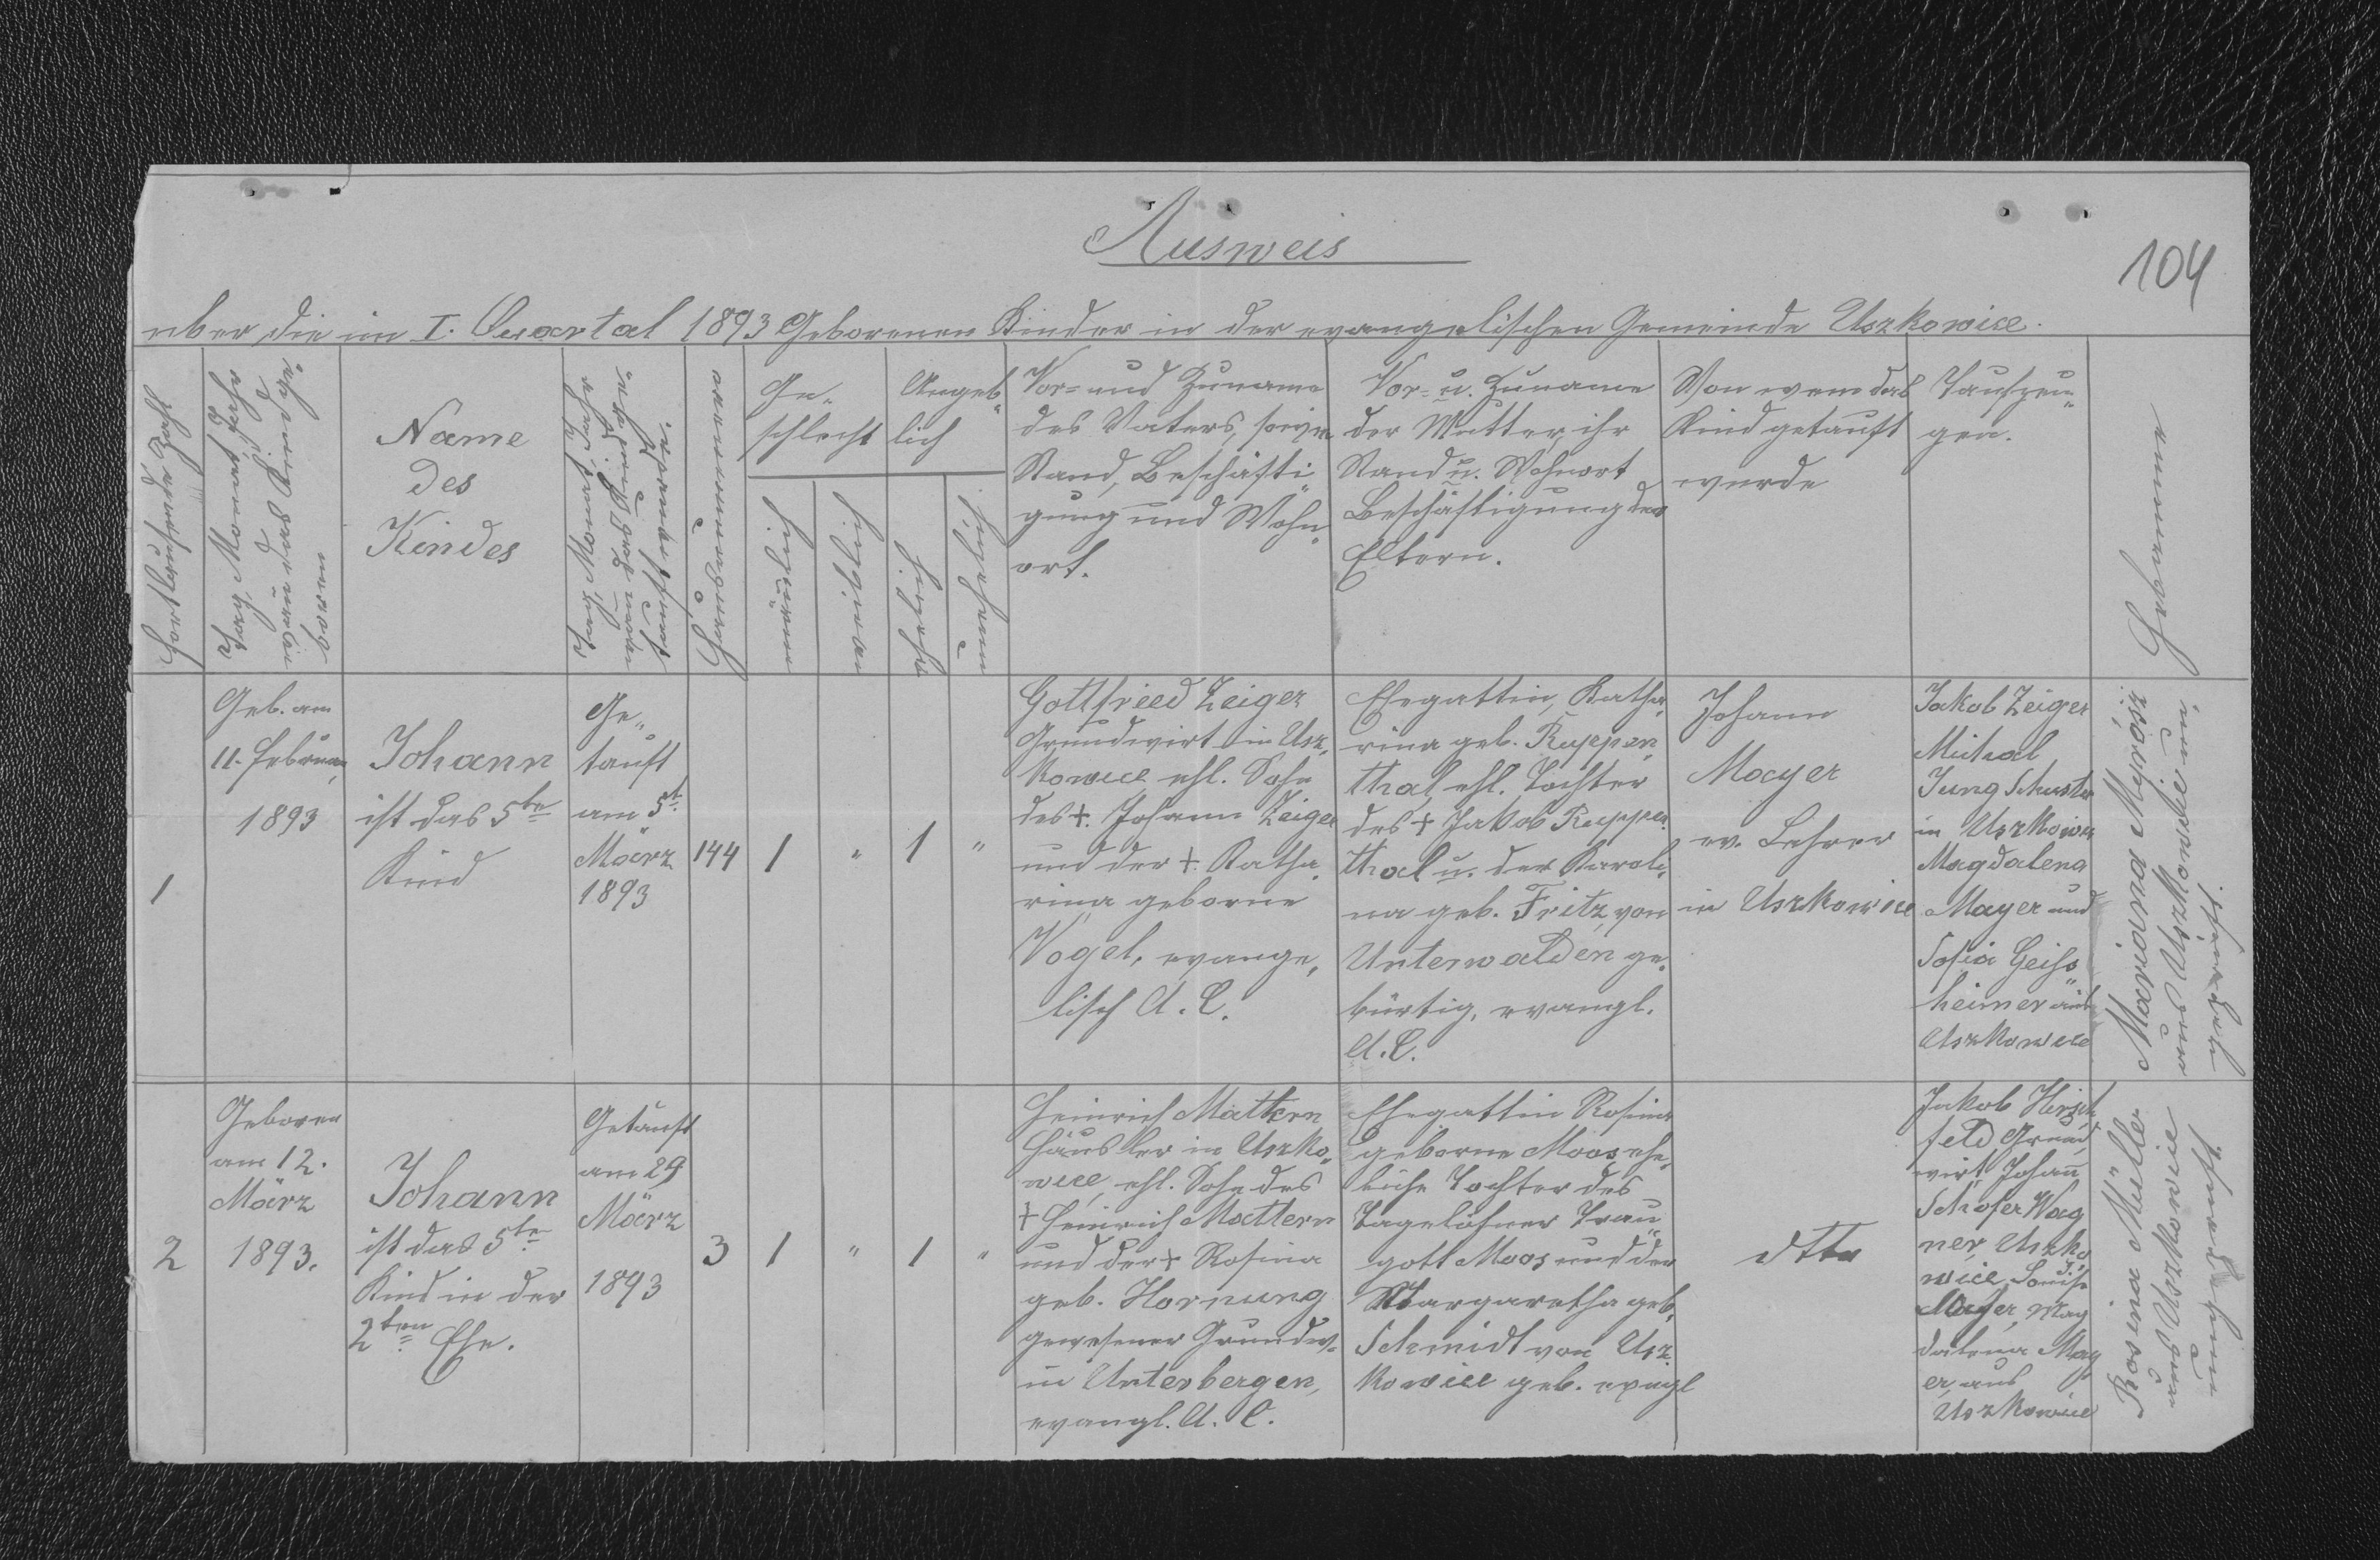 Ausweis
104
über die im I. Quartal 1893 Geborenen Kinder in der evangelischen Gemeinde Uszkowice.
Fortlaufende Zahl
Tag, Monat, Jahr
wann das Kind ge-
boren
Name
des
Kindes
Tag, Monat, Jahr
wann das Kind ge-
tauft worden.
Hausnummer
Ge-
schlecht
männlich
weiblich
Angeb-
lich
ehelich
unehelich
Vor- und Zuname
des Vaters, sowie
Stand, Beschäfti-
gung und Wohn-
ort.
Vor- u. Zuname
der Mutter, ihr
Stand u. Wohnort
Beschäftigung der
Eltern.
Von wem das
Kind getauft
wurde
Taufzeu-
gen.
Hebamme
1
Geb. am
11. Februar
1893
Johann
ist das 5te
Kind
Ge-
tauft
am 5t.
März
1893
144
1
"
1
"
Gottfried Zeiger
Grundwirt in Usz-
kowice, ehl. Sohn
des +. Johann Zeiger
und der +. Katha-
rina geborne
Vogel, evange-
lisch A. C.
Ehegattin, Katha-
rina geb. Ruppen-
thal, ehl. Tochter
des + Jakob Ruppen-
thal u. der Karoli-
na geb. Fritz, von
Unterwalden ge-
bürtig, evangl.
A. C.
Johann
Mayer
ev. Lehrer
in Uszkowice
Jakob Zeiger
Michal
Jung Schuster
in Uszkowice
Magdalena
Mayer und
Sofia Geiss-
heimer aus
Uszkowice
Mariana Mŷrósz
aus Uszkowice un-
geprüft.
2
Geboren
am 12.
März
1893.
Johann
ist das 5te
Kind in der
2ten Ehe.
Getauft
am 29
März
1893
3
1
"
1
"
Heinrich Mattern
Häusler in Uszko-
wice, ehl. Sohn des
+ Heinrich Mattern
und der + Rosina
geb. Hornung
gewesener Grundw.
in Unterbergen,
evangl. A. C.
Ehegattin Rosina
geborne Moos ehe-
liche Tochter des
Tagelöhner Trau-
gott Moos und der
Margaretha geb.
Schmidt von Usz-
kowice geb. evagl
dtto
Jakob Hirsch-
feld Grund-
wirt, Johann
Schofer Wag
ner, Uszko
wice, Louise
Mayer, Mag
dalena May
er, aus
Uszkowice
Rosina Müller
aus Uszkowice
ungeprüft.